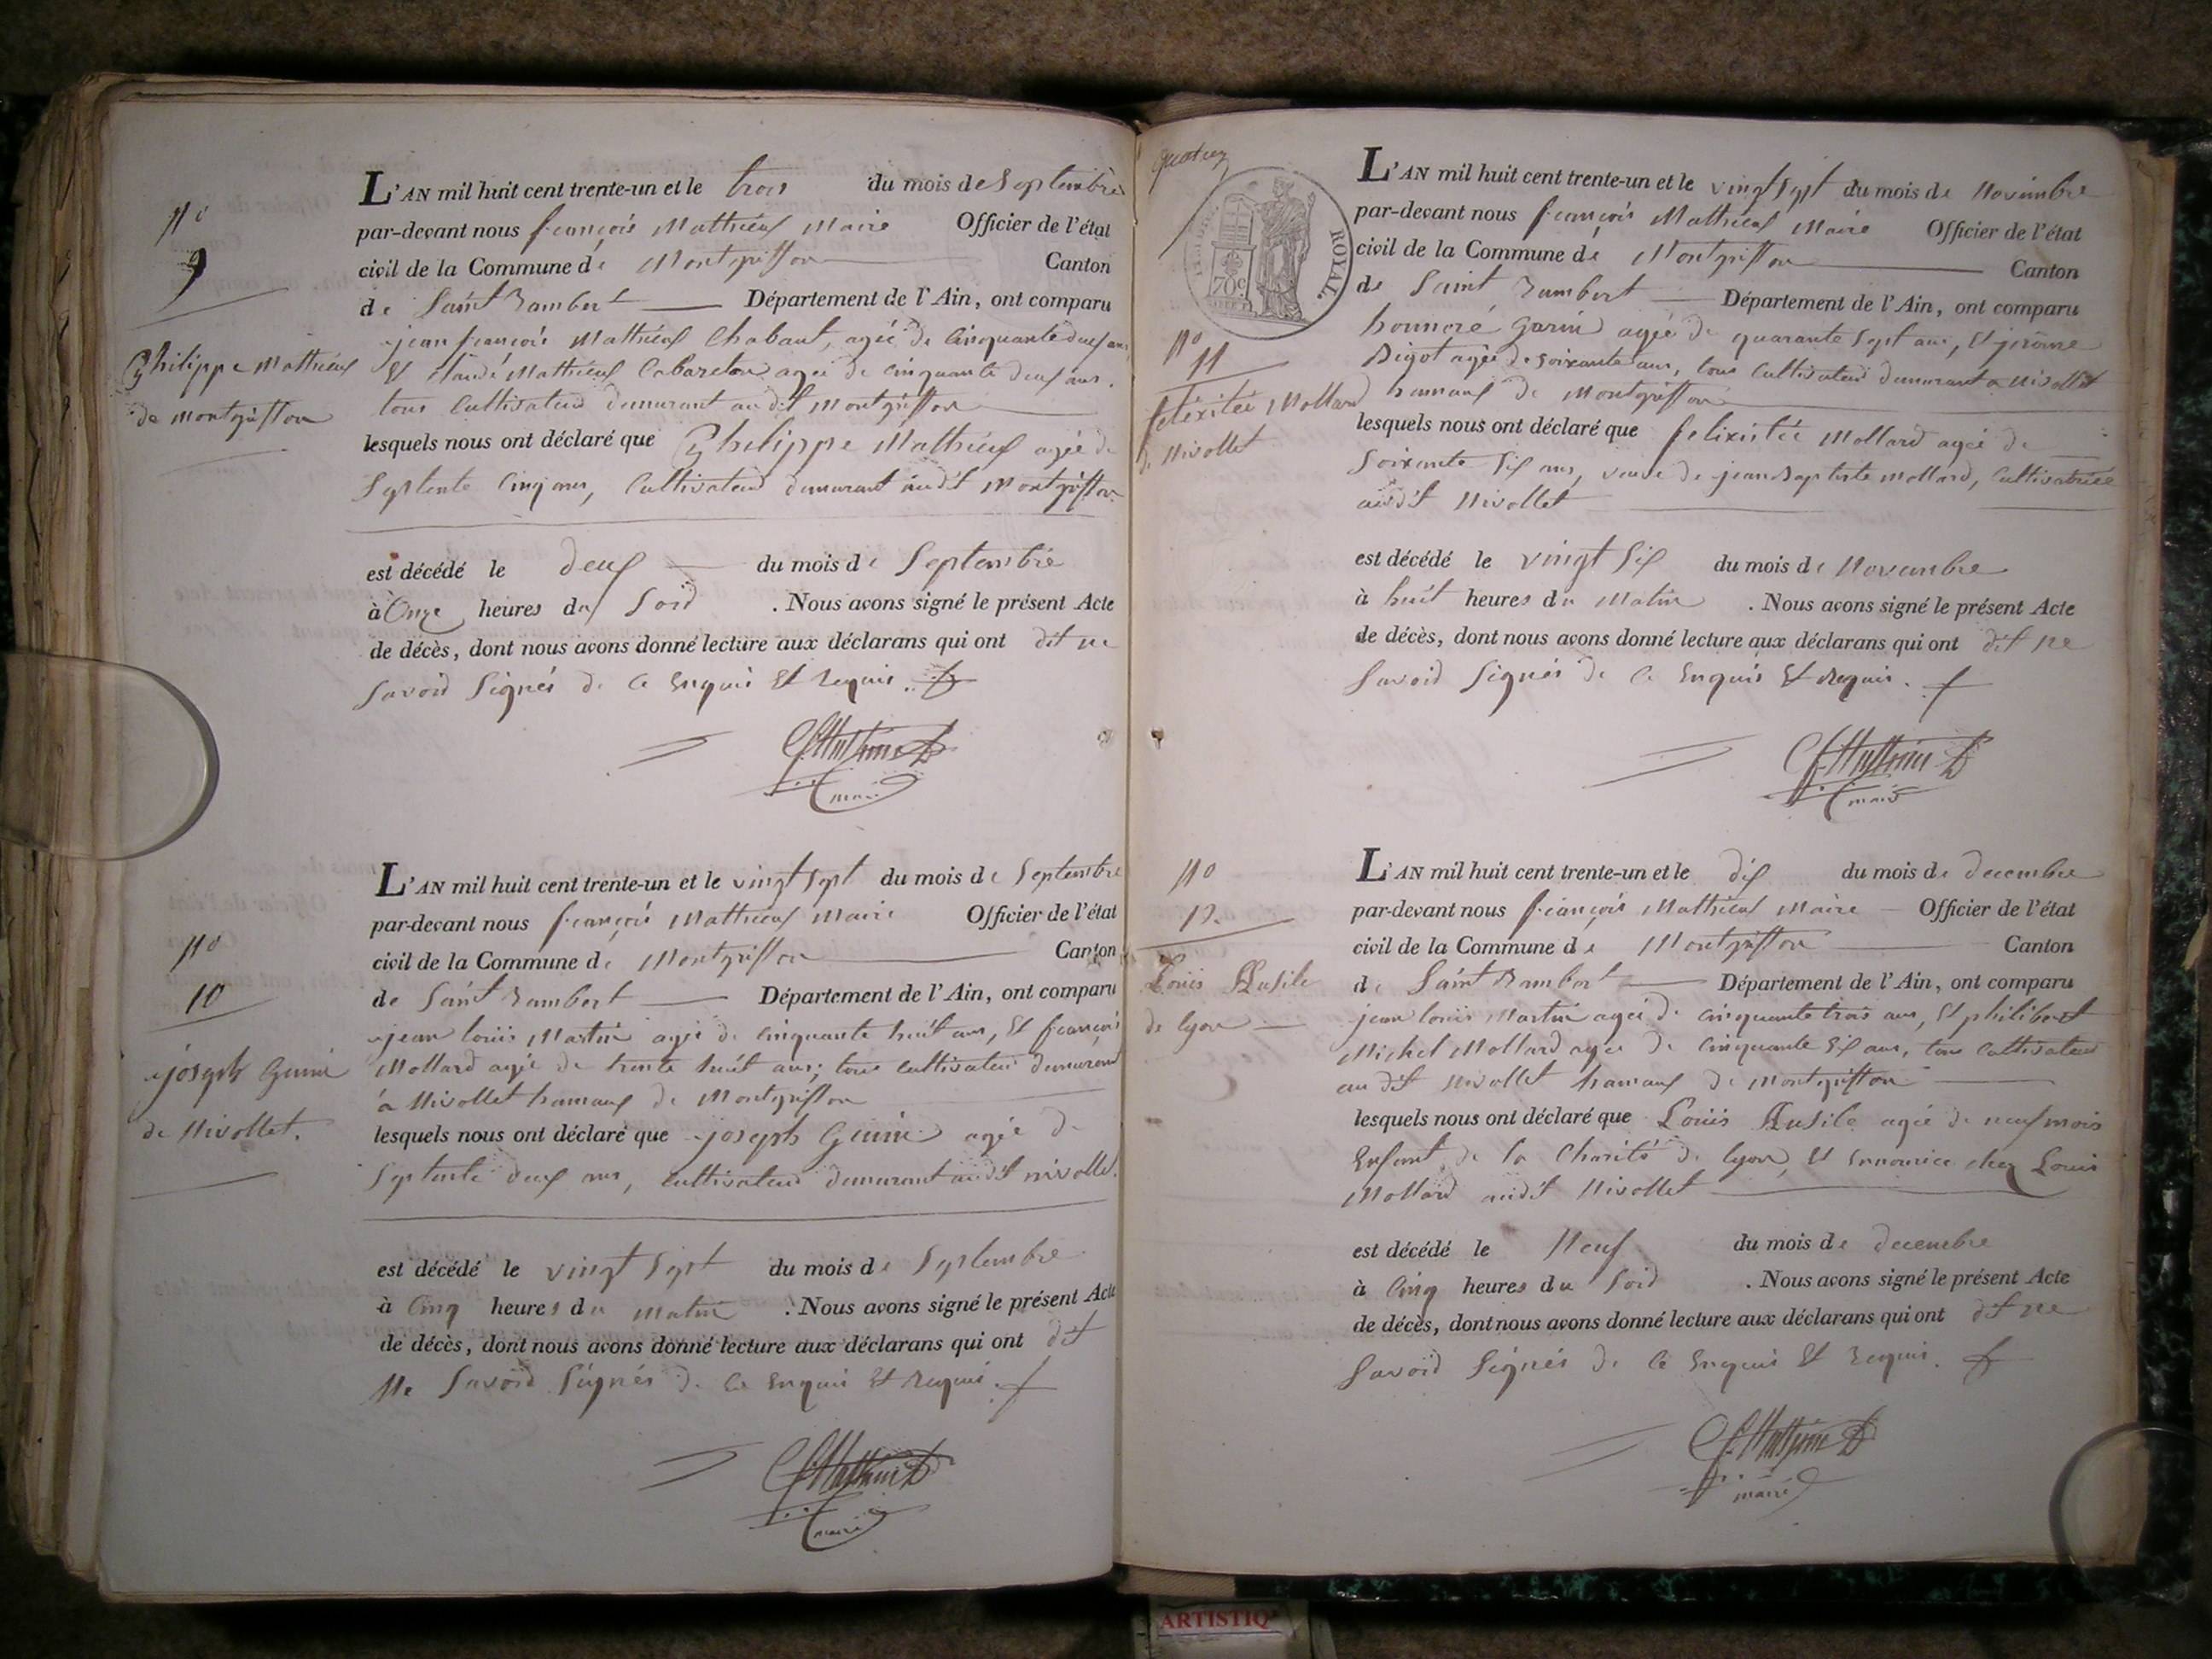 N°
9
Philippe Mathieux
de montgriffon
L'AN mil huit cent trente-un et le trois du mois de Septembre
par-devant nous françois Mathieux Maire Officier de l'état
civil de la Commune de Montgriffon Canton
de Saint Rambert Département de l'Ain, ont comparu
jean françois Mathieux Chabaut, agée de Cinquante deux ans
Et Claude Mathieux Cabareton agée de cinquante deux ans.
tous Cultivateurs demurant audit Montgriffon
lesquels nous ont déclaré que Philippe Mathieux agée de
Septente Cinq ans, Cultivateur demurant audit Montgriffon
est décédé le deux du mois de Septembre
à Onze heures du Soir . Nous avons signé le présent Acte
de décès, dont nous avons donné lecture aux déclarans qui ont dit ne
Savoir Signés de Ce Enquis Et Requis.
f. Mathieu
maire
N°
10
joseph Guini
de Nivollet.
L'AN mil huit cent trente-un et le vingt Sept du mois de Septembre
par-devant nous françois Mathieux Maire Officier de l'état
civil de la Commune de Montgriffon Canton
de Saint Rambert Département de l'Ain, ont comparu
jean louis Martin agée de Cinquante huit ans, Et françois
Mollard agée de trente huit ans; tous cultivateurs demurant
à Nivollet hamaux de Montgriffon
lesquels nous ont déclaré que joseph Guini agée de
Septente deux ans, cultivateur demurant audit nivollet.
est décédé le vingt Sept du mois de Septembre
à Cinq heures du matin . Nous avons signé le présent Acte
de décès, dont nous avons donné lecture aux déclarans qui ont dit
Ne Savoir Signés de Ce Enquis Et Requis.
f. Mathieu
maire
quatre
ROYAL.
70 c
N°
11
feléxitée Mollard
de Nivollet
L'AN mil huit cent trente-un et le vingt Sept du mois de Novembre
par-devant nous françois Mathieux Maire Officier de l'état
civil de la Commune de Montgriffon Canton
de Saint Rambert Département de l'Ain, ont comparu
honnoré Garin agée de quarante Sept ans, Et jérôme
Bigot agée de soixante ans, tous Cultivateurs demurant à Nivollet
hamaux de Montgriffon
lesquels nous ont déclaré que felixitée Mollard agée de
Soixante Six ans, veuve de jean Baptiste mollard, Cultivatrice
audit Nivollet
est décédé le vingt Six du mois de Novembre
à huit heures du Matin . Nous avons signé le présent Acte
de décès, dont nous avons donné lecture aux déclarans qui ont dit ne
Savoir Signés de Ce Enquis Et Requis.
f. Mathieu
maire
N°
12
Louis Rusile
de lyon
L'AN mil huit cent trente-un et le dix du mois de decembre
par-devant nous françois Mathieux Maire Officier de l'état
civil de la Commune de Montgriffon Canton
de Saint Rambert Département de l'Ain, ont comparu
jean louis Martin agée de cinquante trois ans, Et philibert
Michel Mollard agée de Cinquante Six ans, tous Cultivateurs
au dit Nivollet hamaux de Montgriffon
lesquels nous ont déclaré que Louis Rusile agée de neuf mois
Enfant de la Charité de lyon, Et Ennourice chez Louis
Mollard audit Nivollet
est décédé le Neuf du mois de decembre
à Cinq heures du Soir . Nous avons signé le présent Acte
de décès, dont nous avons donné lecture aux déclarans qui ont dit ne
Savoir Signés de Ce Enquis Et Requis.
f. Mathieu
maire
ARTISTIQ